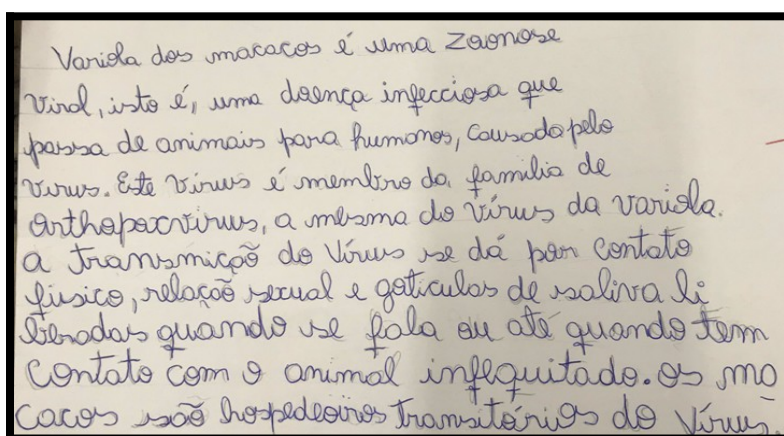 Variola dos macacos é uma zoonose
viral, isto é, uma doença infecciosa que
passa de animais para humanos, causada pelo
vírus. Este vírus é membro da família de
orthopoxvirus, a mesma do vírus da variola.
a transmição do vírus se dá por contato
físico, relação sexual e gotículas de saliva li
beradas quando se fala ou até quando tem
contato com o animal infequitado. os ma
cacos são hospedeoiros transitórios do vírus.